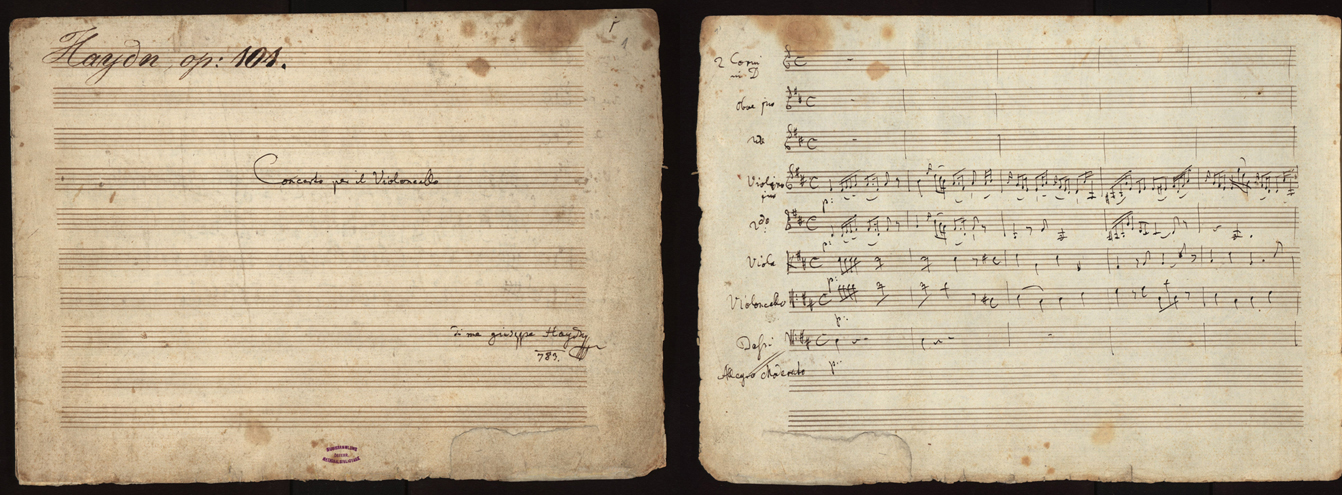 Haydn op: 101.
1
Concerto per il Violoncello
di me giuseppe Haydn
783.
2 Corni
in D
Oboe pmo
2do
Violino
pmo
p:
2do
p:
Viola
p:
Violoncello
p:
Bassi
p:
Allegro Moderato